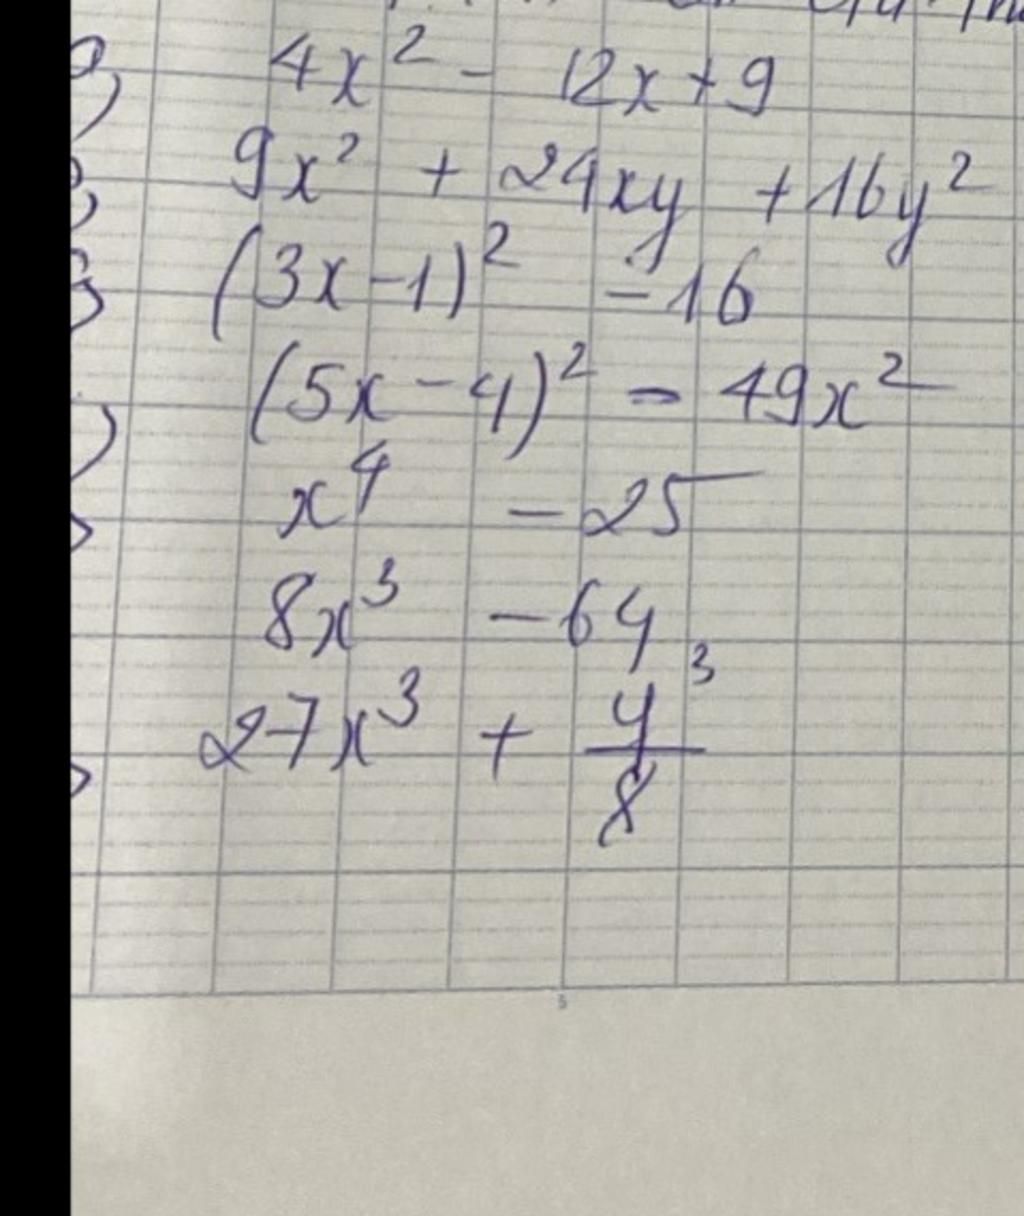 4x² - 12x + 9
9x² + 24xy + 16y²
(3x - 1)² - 16
(5x - 4)² - 49x²
x⁴ - 25
8x³ - 64
27x³ + y³/8